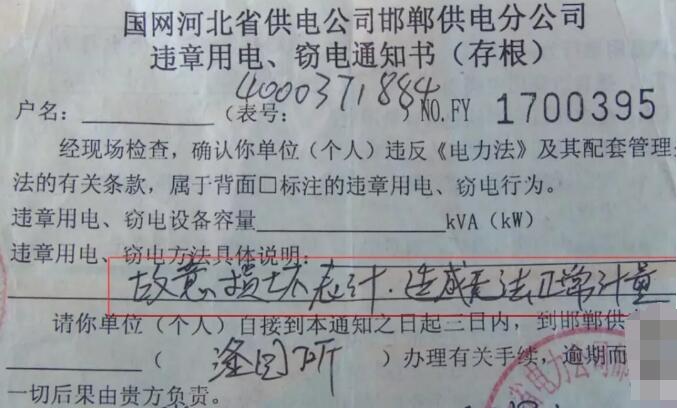 国网河北省供电公司邯郸供电分公司
违章用电、窃电通知书（存根）
户名： （表号：4000371884）NO.FY 1700395
经现场检查，确认你单位（个人）违反《电力法》及其配套管理
法的有关条款，属于背面□标注的违章用电、窃电行为。
违章用电、窃电设备容量 kVA（kW）
违章用电、窃电方法具体说明：
故意损坏表计．造成无法正常计量
请你单位（个人）自接到本通知之日起三日内，到邯郸供
（ ）办理有关手续，逾期而
一切后果由贵方负责。
省电力公司邯